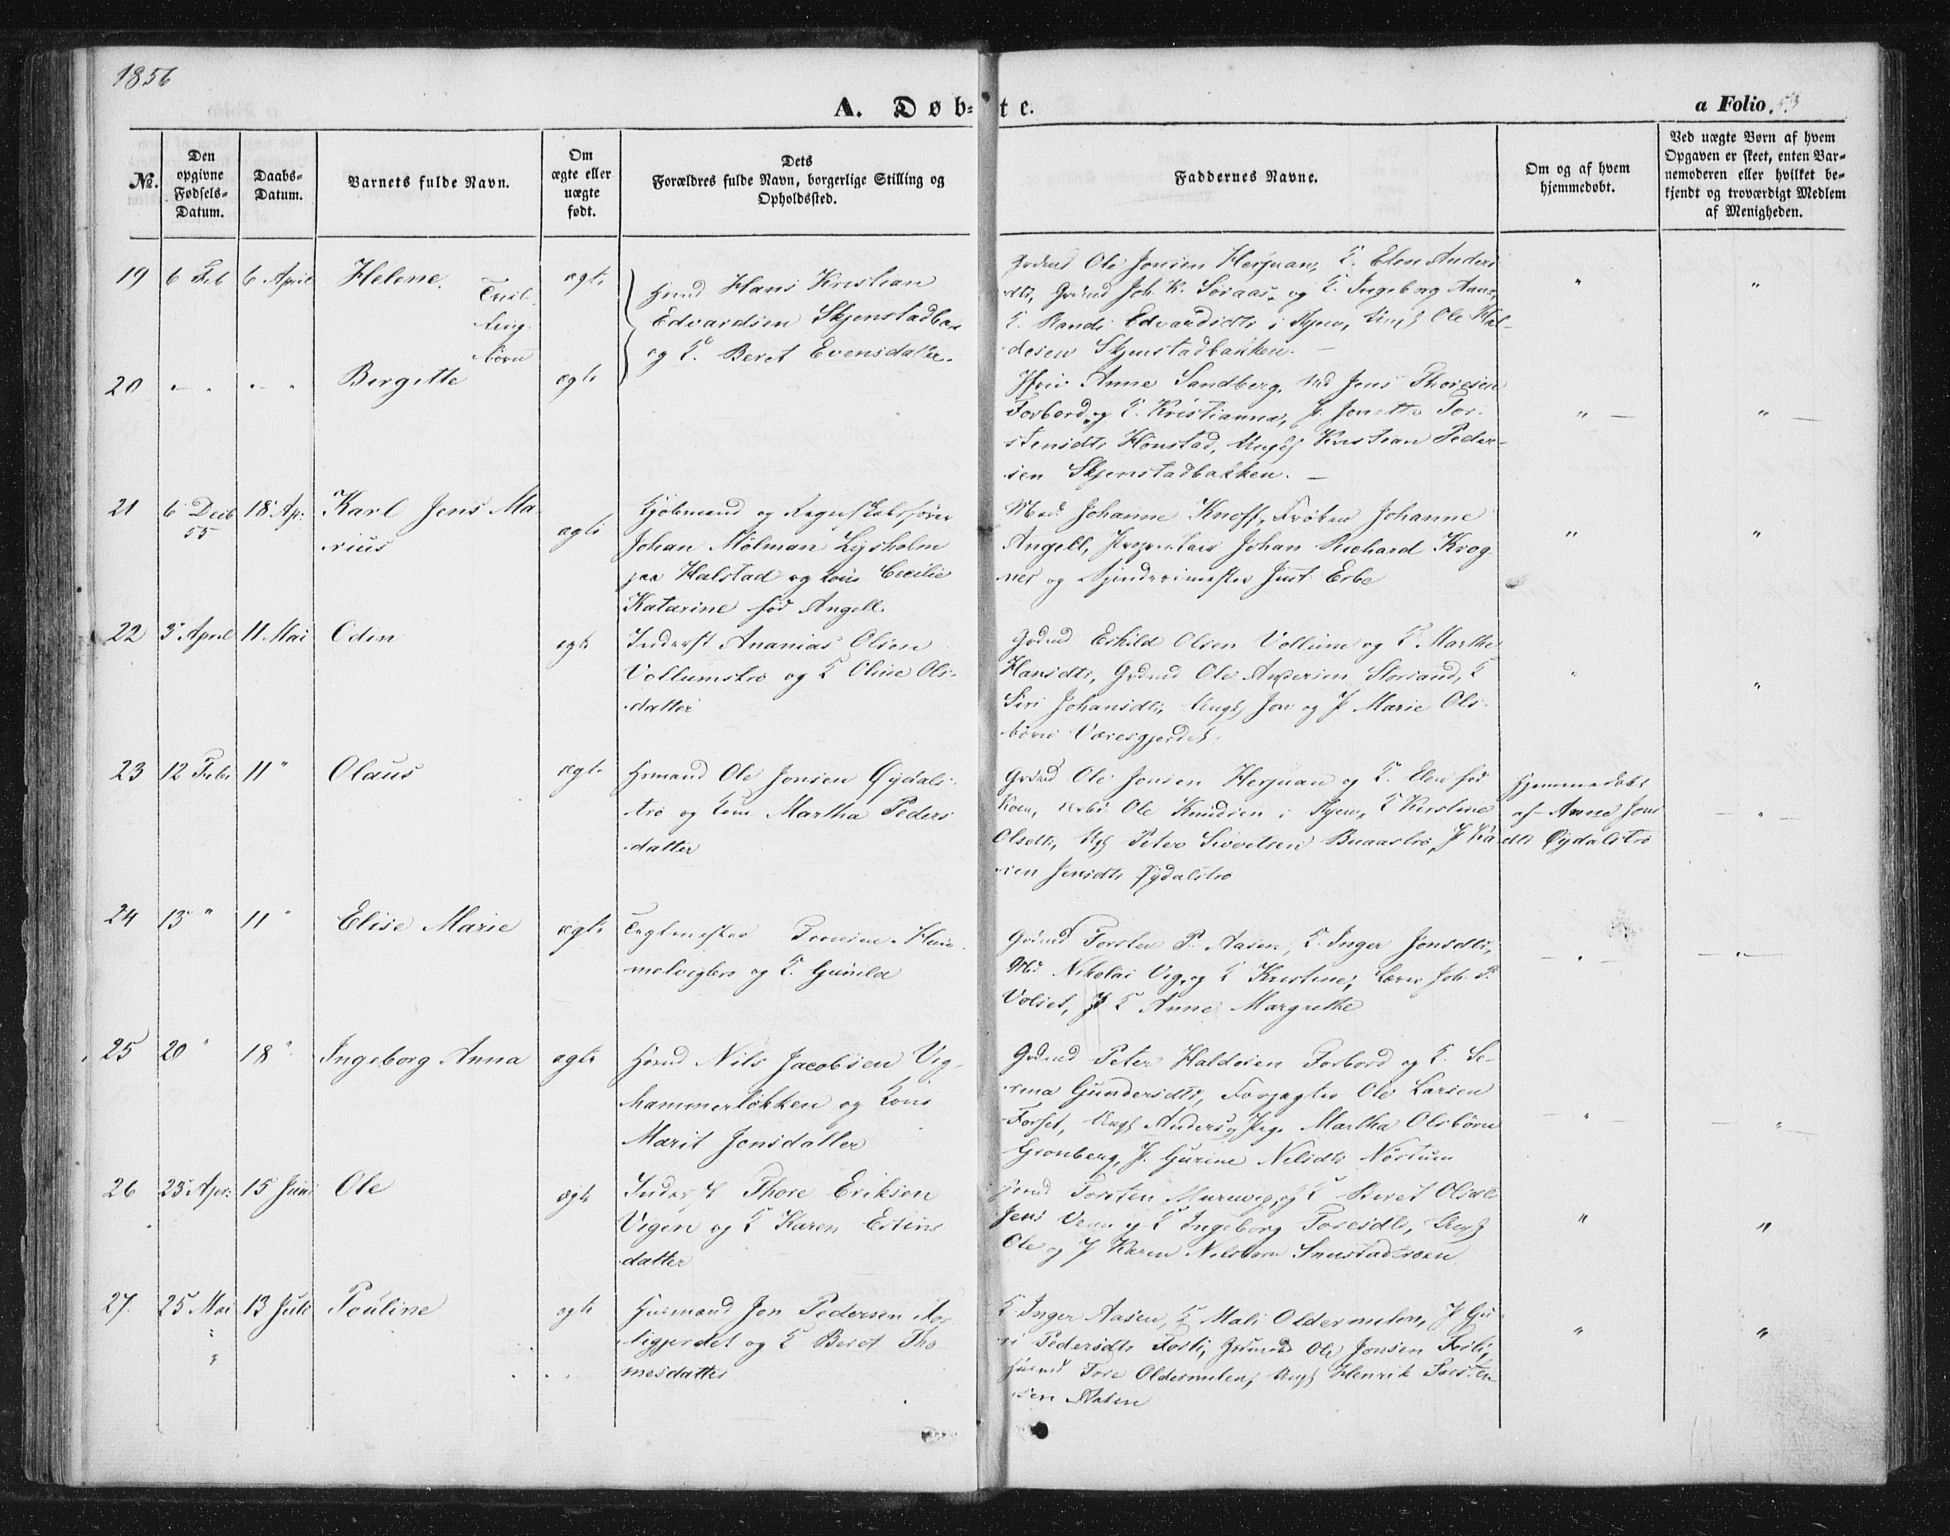 1856
A. Døb-te.
a Folio. 53
No.
Den opgivne Fødsels-Datum.
Daabs-Datum.
Barnets fulde Navn.
Om ægte eller uægte født.
Dets Forældres fulde Navn, borgerlige Stilling og Opholdssted.
Faddernes Navne.
Om og af hvem hjemmedøbt.
Ved uægte Børn af hvem Opgaven er skeet, enten Barnemoderen eller hvilket bekjendt og troværdigt Medlem af Menigheden.
19 6 Feb 6 April Helene. ægte
Tvillingbørn
Hmd Hans Kristian
Edvardsen Skjenstadbak
og K. Beret Evensdatter.
Gdmd Ole Jonsen Herjuan, K. Elen Anders
dtr, Gdmd Joh. K. Søraas, og K. Ingeborg Anna,
K. Randi Edvardsdtr i Hjem, Ungk Ole Hal-
desen Skjenstadbakken. —
20 " " " " Birgitte ægte
Anne Sandberg, Jens Thoresen
Forbord og K. Kristianna, P. Jonetta Tor-
stensdtr Hønstad, Ungk Kristian Peder-
sen Skjenstadbakken. —
21 6 Decb 55 18 Ap: Karl Jens Ma-
rius ægte
Kjøbmand og Regnskabsfører
Johan Mølman Lysholm
paa Halstad og Kone Cecilie
Katarine fød Angell.
Mad Johanne Knoff, Frøken Johanne
Angell, Johan Richard Krog
ner og Just Erbe
22 3 April 11 Mai Odin ægte
Inderst Ananias Olsen
Vollumstrø og K Oline Ols-
datter
Gdmd Eskild Olsen Vollum og K. Martha
Hansdtr, Gdmd Ole Andersen Storsand, K
Siri Johansdtr, Ungk Jon og P Marie Ols-
børn Væresgjerdet.
23 12 Febr 11 " Olaus ægte
Hsmand Ole Jonsen Øydals-
trø og Kone Martha Peders
datter
Gdmd Ole Jonsen Herjuan og K. Elen fød
Ole Knudsen i Hjem, K Kirstine
Olsdtr, Ungk Peter Sivertsen Buaastrø, P Ka
ren Jensdtr Øydalstrø
Hjemmedøbt
af Anne Jons
dtr Øydalstrø
24 13 " 11 " Elise Marie ægte
Teglmester
melvigbro og K. Gunild
Gdmd Torsten P. Aasen, K. Inger Jonsdtr,
Nikolai Vig, og K Kristine, Joh. P.
Volset, K Anne Margrethe
25 20 " 18 " Ingeborg Anna ægte
Hsmd Nils Jacobsen Vig-
hammerløkken og Kone
Marit Jonsdatter
Gdmd Peter Haldosen Forbord og K. Se-
rina Gundersdtr, Forpagter Ole Larsen
Forset, Ungk Anders og Pige Martha Olsbørn
Grønberg, P. Gurine Nilsdtr Nøstum
26 23 Apr: 15 Juni Ole ægte
Inderst Thore Eriksen
Vigen og K Karen Estens
datter
Hsmd Torsten Muruvig, og K Beret Olsdtr
Jens Venn og K Ingeborg Toresdtr, Ungk
Ole og P Karen Nilsbørn
27. 25 Mai 13 Juli Pauline ægte
Husmand Jon Pedersen Aas-
ligjerdet og K Beret Tho
mesdatter
K Inger Aasen, K Mali Oldermelen, P Gu-
ri Pedersdtr Forli, Gdmand Ole Jonsen Forli,
Husmd Tore Oldermelen, Ungk Henrik Torsten
sen Aasen